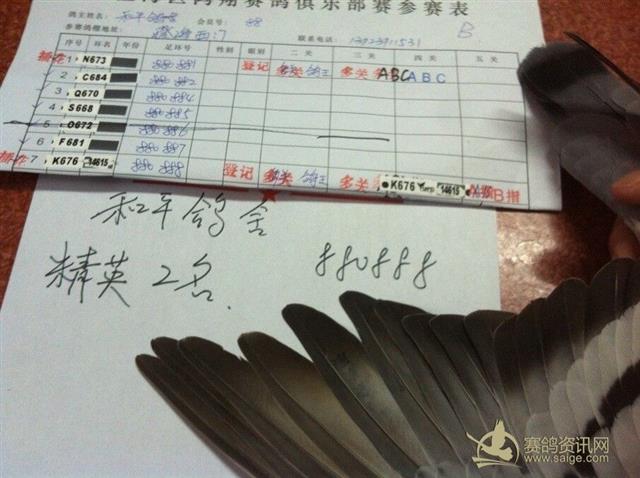 翔赛鸽俱乐部赛参赛表
鸽主姓名: 和平鸽舍 会员号: 88 B
参赛鸽棚地址: 联系电话:
序号 环名 年份 足环号 性别 眼别 二关 三关 四关 五关
1 N673 880881 登记 鸽王 多关 ABC ABC
2 C684 880882
3 Q670 880884
4 S668 880885
5 O672 880886
6 F681 880887
7 K676 14615 880888 登记 多关 鸽王 多关 K676 14615 B指
和平鸽舍
精英2名.
880888
赛鸽资讯网
www.saige.com